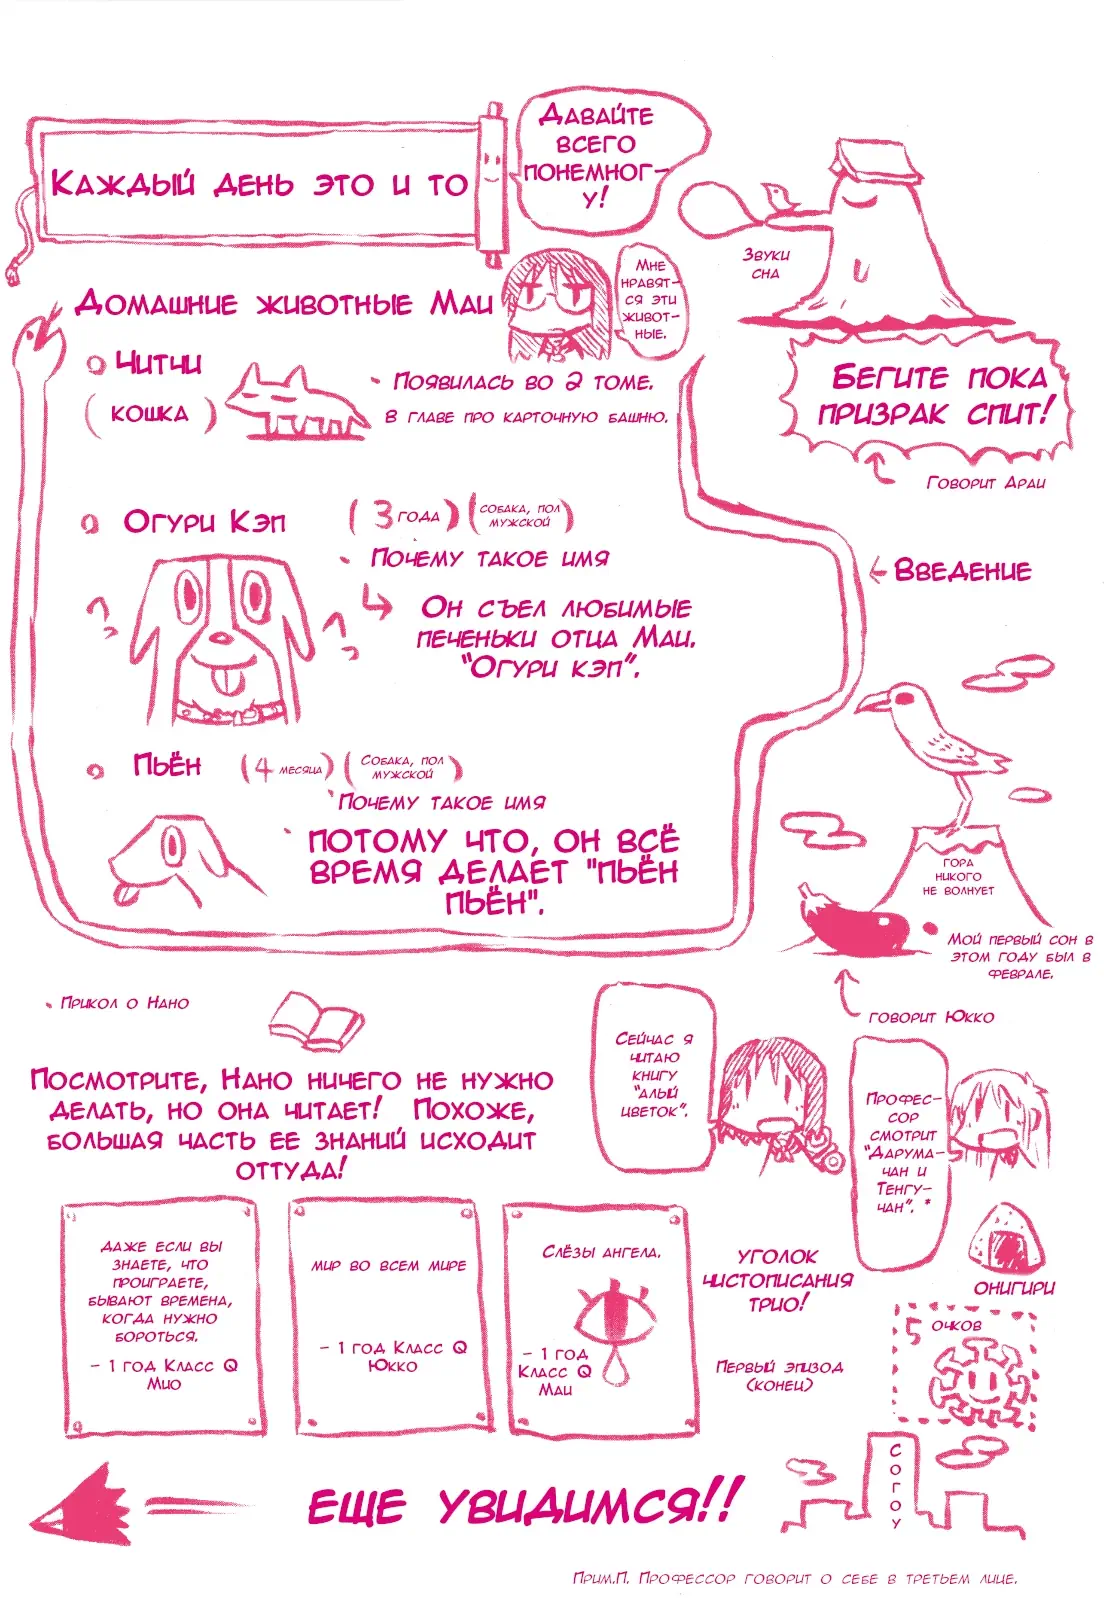 Давайте
всего
понемног-
у!
Каждый день это и то
Звуки
сна
Мне
нравят-
ся эти
живот-
ные.
Домашние животные Маи
Читчи
(кошка)
Появилась во 2 томе.
В главе про карточную башню.
Бегите пока
призрак спит!
Говорит Араи
Огури Кэп
(3 года)
(собака, пол
мужской)
Почему такое имя
Он съел любимые
печеньки отца Маи.
"Огури кэп".
Введение
Пьён
(4 месяца)
(Собака, пол
мужской)
Почему такое имя
потому что, он всё
время делает "пьён
пьён".
гора
никого
не волнует
Мой первый сон в
этом году был в
феврале.
говорит Юкко
Прикол о Нано
Посмотрите, Нано ничего не нужно
делать, но она читает! Похоже,
большая часть ее знаний исходит
оттуда!
Сейчас я
читаю
книгу
"алый
цветок".
Профес-
сор
смотрит
"Дарума-
чан и
Тенгу-
чан". *
даже если вы
знаете, что
проиграете,
бывают времена,
когда нужно
бороться.
- 1 год Класс Q
Мио
мир во всем мире
- 1 год Класс Q
Юкко
Слёзы ангела.
- 1 год
Класс Q
Маи
уголок
чистописания
трио!
Первый эпизод
(конец)
онигири
5 очков
Согоу
еще увидимся!!
Прим.П. Профессор говорит о себе в третьем лице.